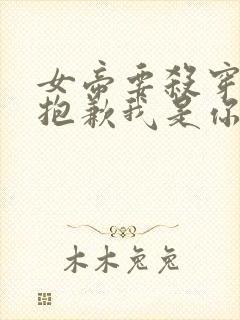 女帝要殺穿
抱歉我是你
木木兔兔